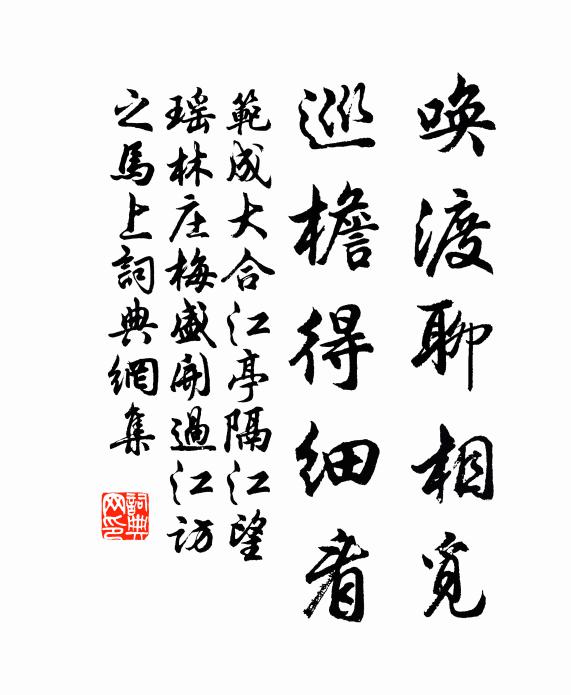 唤渡聊相覓
巡檐得細看
範成大合江亭隔江望
瑶林庄梅盛開過江訪
之馬上詞典網集
詞典網印